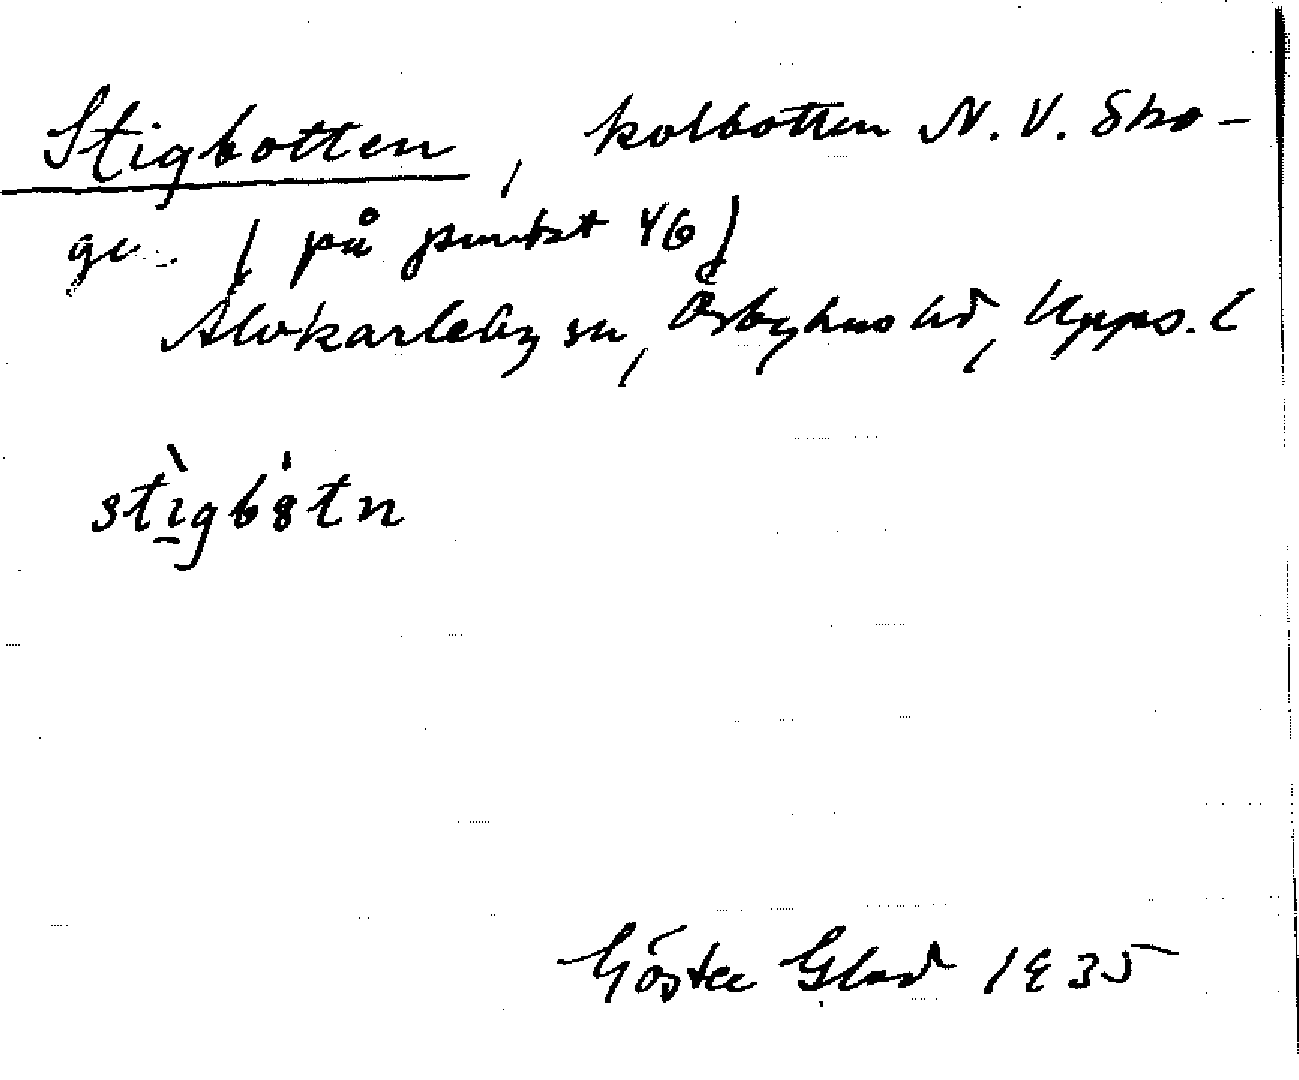 Stigbotten, kolbotten N.V. Sko-
ge (på punkt 46)
Älvkarleby sn, Örbyhus hd, Upps. l
stìgbòtn
Gösta Glad 1935